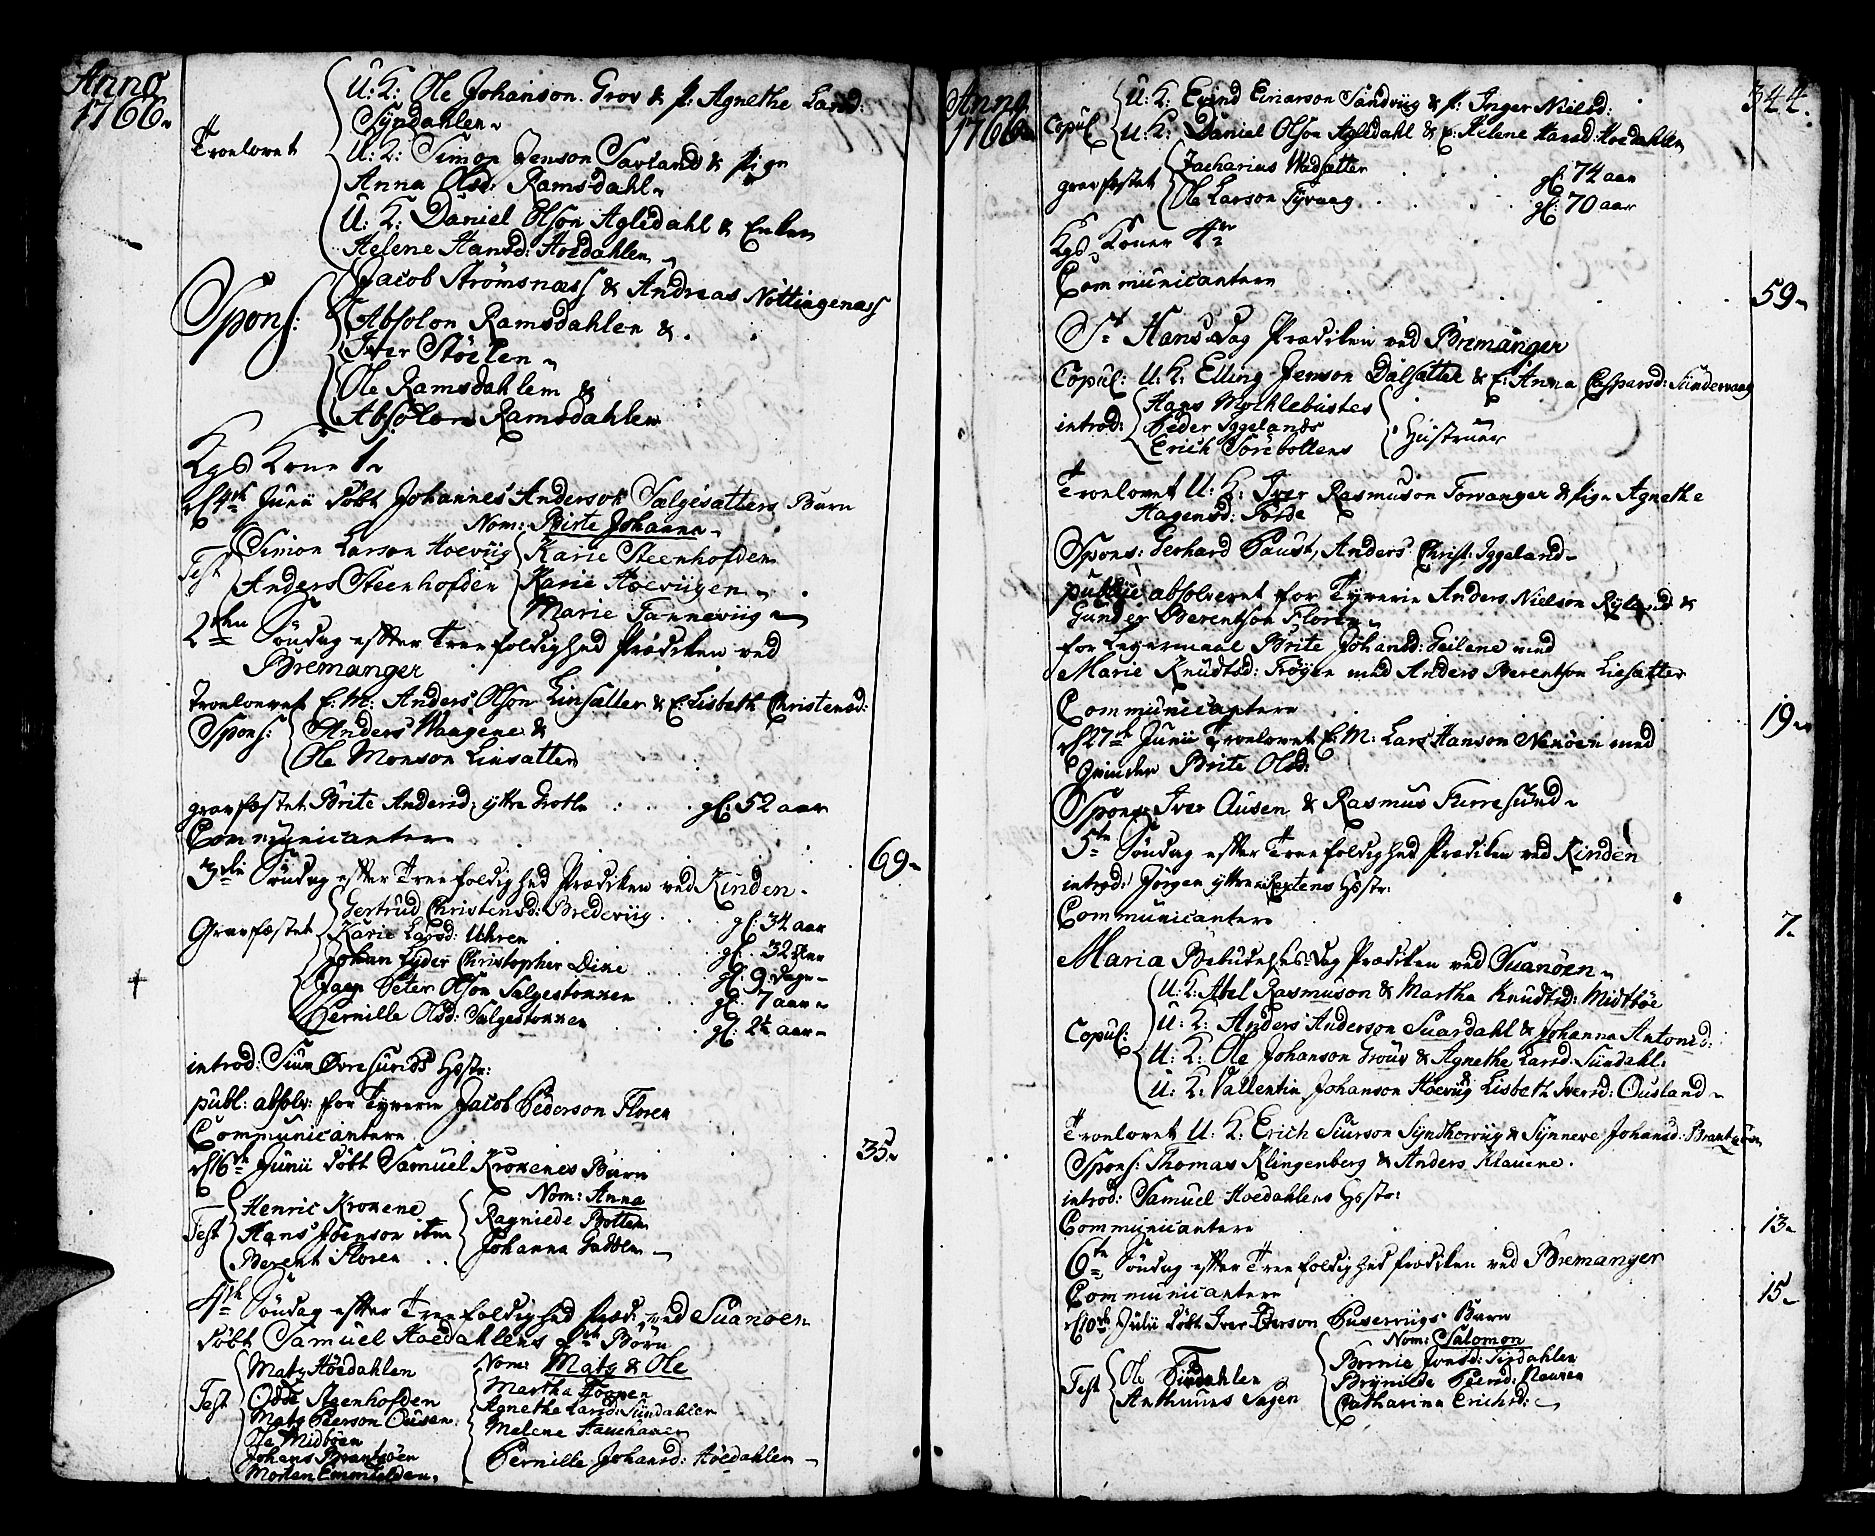 Anno
1766.
Troelovet
U: K: Ole Johanson Grov & p: Agnethe Larsd:
Syndahlen
U: K: Simon Jenson Savland & Pign
Anna Olsd: Ramsdahl
U: K: Daniel Olson Agledahl & Enken
Helene Hansd: Hoedahlen
Spons:
Jacob Strömsnæss & Andreas Nöttingenæss
Absolon Ramsdahlen &
Iver Stöelen
Ole Ramsdahlem &
Absolon Ramsdahlen
Kgs Kone 1
d 4de Junii döbt Johannes Anderson Sælgesætters Barn
Nom: Birte Johanna
Test
Simon Larson Hoeviig
Anders Steenhofden
Karie Steenhofden
Karie Hoeviigen
Marie Fanneviig
2den Söndag effter Treefoldighed Prædiken ved
Bremanger
Troelovet E: M: Anders Olson Linsætter & E: Lisbeth Christensd:
Spons:
Anders Waagene &
Ole Monson Linsætter
gravfæstet Brite Andersd: yttre Grotle gl: 52 aar
Communicantere
69
3die Söndag effter Treefoldighed Prædiken ved Kinden
Gravfæstet
Gertrud Christensd: Bredeviig gl: 34 aar
Karie Larsd: Uhren gl: 32 aar
Johan Lyder Christopher Dine gl: 9 dage
Peter Olson Sælgestokken gl: 7 aar
Pernille Olsd: Sælgestokken gl: 2½ aar
introd: Siun Övresunds Hstr:
publ: absolv: for Tyverie Jacob Pederson Floren
Communicantere
35
d 16de Junii döbt Samuel Krokenes Barn
Nom: Anna
Test
Henric Krokene
Hans Joenson ibm
Berent Floren
Ragniede Botten
Johanna Gadden
4de Söndag effter Treefoldighed Præd: ved Suanöen
döbt Samuel Hoedahlens Börn
Nom: Mats & Ole
Test
Mats Höedahlen
Odde Steenhofden
Mats Peerson Ousen
Ole Midböen
Johans Brantzöen
Morten Emmhelden
Martha Toppen
Agnethe Larsd: Sündahlen
Melene
Pernille Johansd: Höedahlen
Anno
1766
344.
Copul:
U: K: Evind Einarson Sandviig & p: Inger Nielsd:
U: K: Daniel Olson Agledahl & E: Helene Hansd: Hoedahlen
gravfæstet
Zacharias Wedsætter gl: 74 aar
Ole Larson Tyvaag gl: 70 aar
Kgs Koner 4
Communicantere
59
St Hans dag Prædiken ved Bremanger
Copul: U: K: Elling Jenson Dalsætter & E: Anna Caspersd: Sündervaag
introd:
Hans Mochlebustes
Peder Iggelands
Erich Sörebottens
Hustruer
Troelovet U: K: Iver Rasmuson Torvanger & Pign Agnethe
Hagensd: Förde
Spons: Gerhard Faust, Anders Christ: Iggeland
publice absolveret for Tyverie Anders Nielson Ryland &
Gunder Berentson Floren
for Leyermaal Brite Johansd: Geilene med
Marie Knudtsd: Tröyen med Anders Berentson Liesætter
Communicantere
19
d 27de Junii Troelovet E: M: Lars Hanson Nenöen med
Qvinden Brite Olsd:
Spons: Iver Ousen & Rasmus Furresund
5te Söndag effter Treefoldighed Prædiken ved Kinden
introd: Jörgen yttre Rextens Hstr:
Communicantere
7
Maria Besudelses-dag Prædiken ved Suanöen
Copul:
U: K: Abel Rasmuson & Martha Knudtsd: Midtböe
U: K: Anders Anderson Suardahl & Johanna Antonisd:
U: K: Ole Johanson Grov & Agnethe Larsd: Sündahl:
U: K: Vallentin Johanson Hoeviig & Lisbeth Iversd: Ousland
Troelovet U: K: Erich Siurson Syndhorviig & Synneve Johansd: Brantzöen
Spons: Thomas Klingenberg & Anders Klauene.
introd: Samuel Hoedahlens Hstr:
Communicantere
13
6te Söndag effter Treefoldighed Prædiken ved Bremanger
Communicantere
15
d 10de Julii döbt Iver Iverson Buserviigs Barn
Nom: Salomon
Test
Ole Sindahlen
Anthunus Sagen
Bernie Jonsd: Sindahlen
Brynilde Peersd: Naveen
Catharina Erichsd: